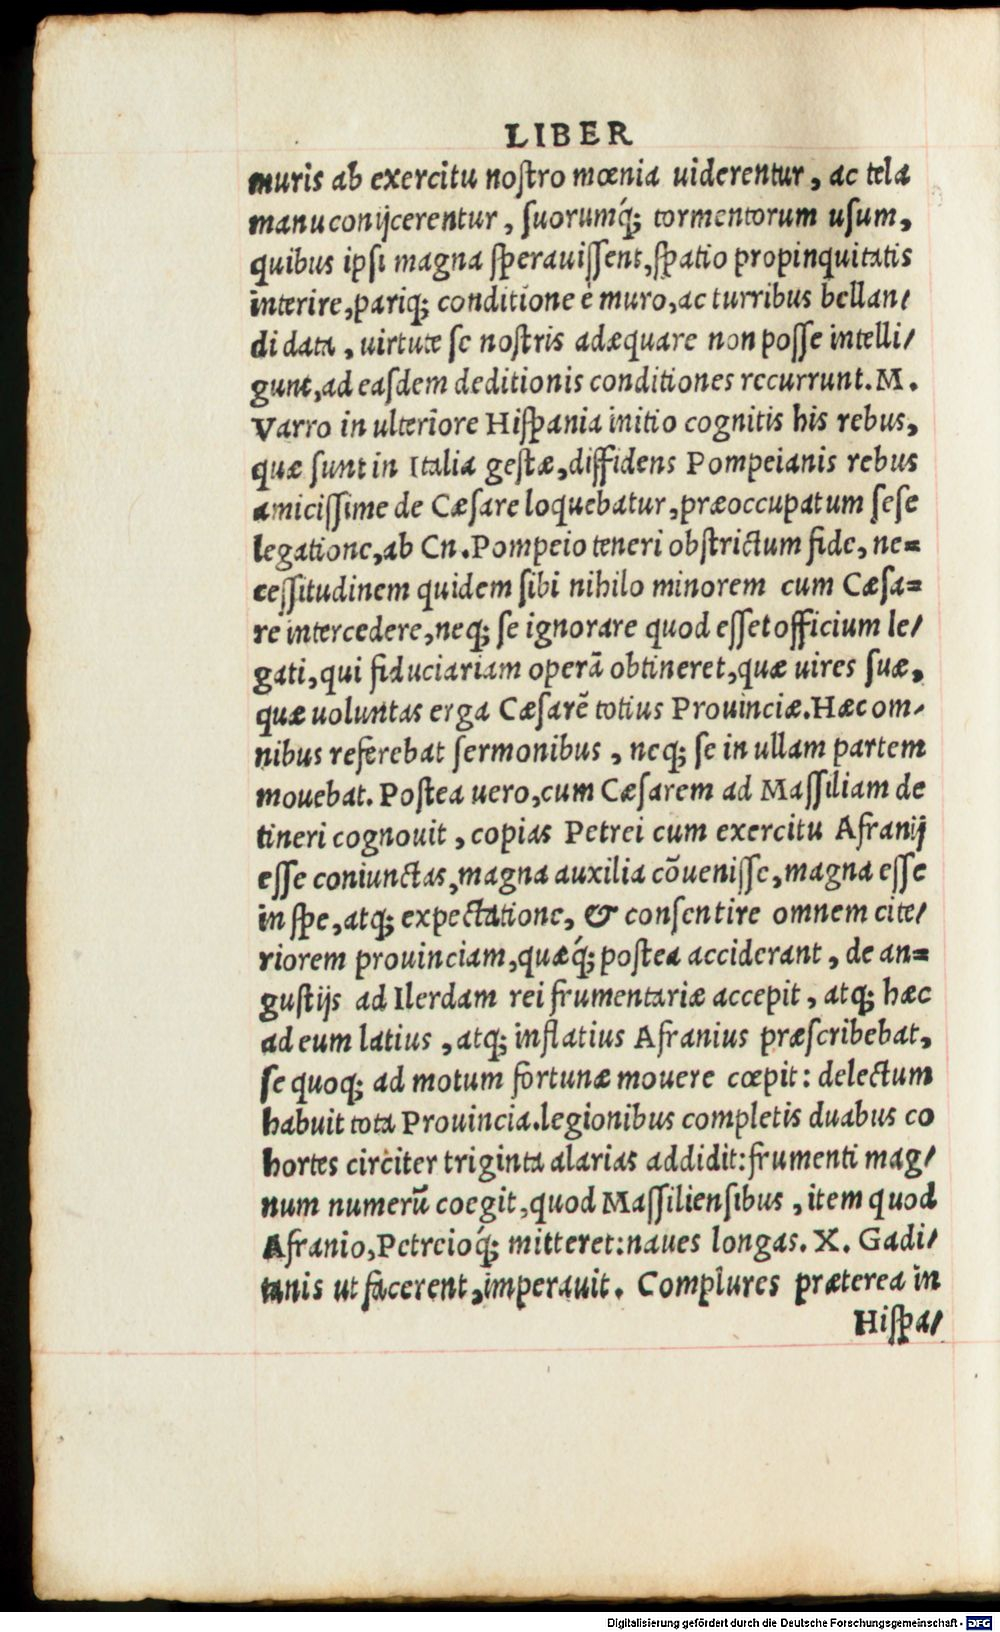 LIBER
muris ab exercitu noſtro mœnia uiderentur, ac tela
manu conijcerentur, ſuorumq́; tormentorum uſum,
quibus ipſi magna ſperauiſſent, ſpatio propinquitatis
interire, pariq; conditione e muro, ac turribus bellan/
di data, uirtute ſe noſtris adæquare non poſſe intelli/
gunt, ad eaſdem deditionis conditiones recurrunt. M.
Varro in ulteriore Hiſpania initio cognitis his rebus,
quæ ſunt in Italia geſtæ, diffidens Pompeianis rebus
amiciſſime de Cæſare loquebatur, præoccupatum ſeſe
legatione, ab Cn. Pompeio teneri obſtrictum fide, ne=
ceſſitudinem quidem ſibi nihilo minorem cum Cæſa=
re intercedere, neq; ſe ignorare quod eſſet officium le/
gati, qui fiduciariam operã obtineret, quæ uires ſuæ,
quæ uoluntas erga Cæſarẽ totius Prouinciæ. Hæc om/
nibus referebat ſermonibus, neq; ſe in ullam partem
mouebat. Poſtea uero, cum Cæſarem ad Maſſiliam de
tineri cognouit, copias Petrei cum exercitu Afranij
eſſe coniunctas, magna auxilia cõueniſſe, magna eſſe
in ſpe, atq; expectatione, & conſentire omnem cite/
riorem prouinciam, quæq́; poſtea acciderant, de an=
guſtijs ad Ilerdam rei frumentariæ accepit, atq; hæc
ad eum latius, atq; inflatius Afranius præſcribebat,
ſe quoq; ad motum fortunæ mouere cœpit: delectum
habuit tota Prouincia. legionibus completis duabus co
hortes circiter triginta alarias addidit: frumenti mag/
num numerũ coegit, quod Maſſilienſibus, item quod
Afranio, Petreioq́; mitteret: naues longas. X. Gadi/
tanis ut facerent, imperauit. Complures præterea in
Hiſpa/
Digitalisierung gefördert durch die Deutsche Forschungsgemeinschaft - DFG